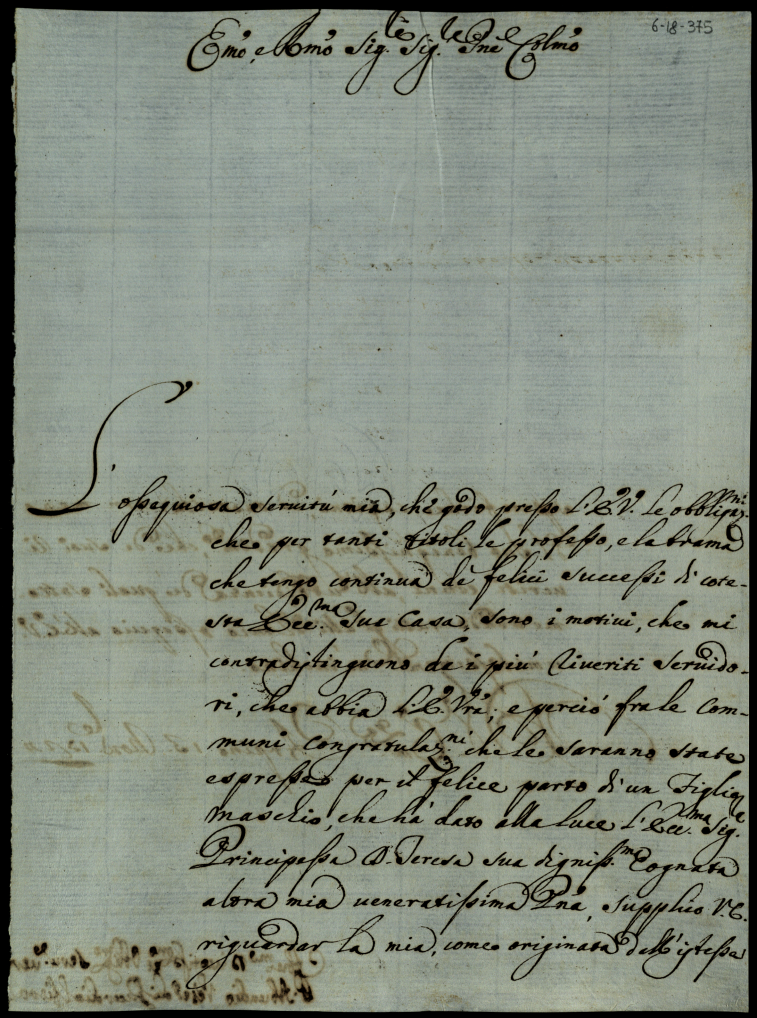 6-18-375
Emõ, e Rmõ Sig.re Sig.re Pñe Colmõ
L'ossequiosa seruitú mia, che godo presso L'E.V. le obbligaz.ni
che per tanti titoli le professo, e la brama
che tengo continua de felici successi di cote-
sta Ecc.ma Sua Casa, sono i motiui, che mi
contradistinguono da i piú riueriti seruido-
ri, che abbia L'E. Vrã; e perció fra le com-
muni congratulaz.ni che le saranno state
espresse per il felice parto di un Figlio
maschio, che há dato alla luce L'Ecc.ma Sig.ra
Principessa D. Teresa sua digniss.ma Cognata
altra mia ueneratissima Pñã, supplico V.E.
riguardar la mia, come originata dall'istessa